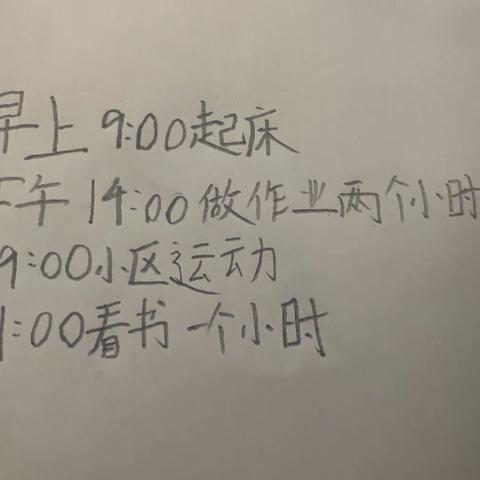 早上 9:00起床
下午 14:00做作业两个小时
9:00小区运动
1:00看书一个小时